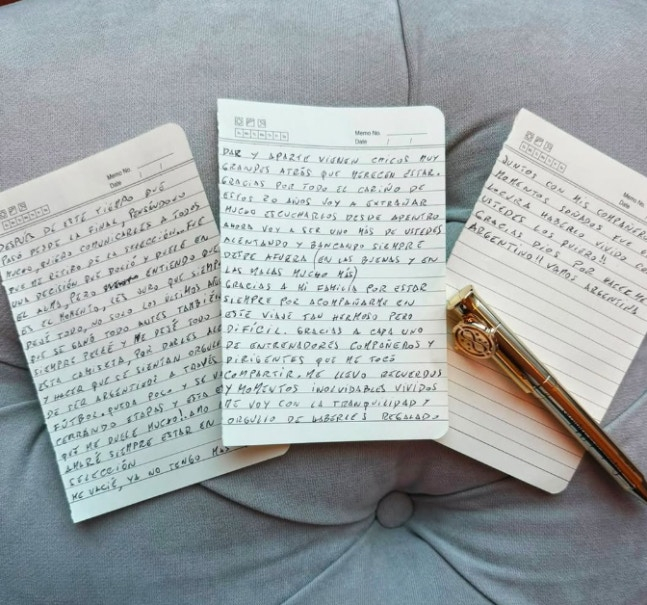 Memo No.
Date / /
DESPUÉS DE ESTE TIEMPO QUE
PASÓ DESDE LA FINAL, PENSÁNDOLO
MUCHO, QUIERO COMUNICARLES A TODOS
QUE ME RETIRO DE LA SELECCIÓN. FUE
UNA DECISIÓN QUE DOLIÓ Y DUELE EN
EL ALMA, PERO ENTIENDO QUE
ES EL MOMENTO, LES JURO QUE SIEMPRE
DEJÉ TODO, NO SOLO LOS ÚLTIMOS AÑOS
QUE SE GANÓ TODO, ANTES TAMBIÉN
SIEMPRE PELEÉ Y ME DEJÉ TODO
ESTA CAMISETA, POR DARLES
Y HACER QUE SE SIENTAN
DE SER ARGENTINOS A TRAVÉS
FÚTBOL. QUEDA POCO Y SE
CERRANDO ETAPAS Y ESTA
QUE ME DUELE MUCHO! AMO
AMARÉ SIEMPRE ESTAR EN
SELECCIÓN
ME VACIÉ, YA NO TENGO MÁS
Memo No.
Date / /
DAR Y APARTE VIENEN CHICOS MUY
GRANDES ATRÁS QUE MERECEN ESTAR.
GRACIAS POR TODO EL CARIÑO DE
ESTOS 20 AÑOS VOY A EXTRAÑAR
MUCHO ESCUCHARLOS DESDE ADENTRO
AHORA VOY A SER UNO MÁS DE USTEDES
ALENTANDO Y BANCANDO SIEMPRE
DESDE AFUERA (EN LAS BUENAS Y EN
LAS MALAS MUCHO MÁS)
GRACIAS A MI FAMILIA POR ESTAR
SIEMPRE POR ACOMPAÑARME EN
ESTE VIAJE TAN HERMOSO PERO
DIFÍCIL. GRACIAS A CADA UNO
DE ENTRENADORES COMPAÑEROS Y
DIRIGENTES QUE ME TOCÓ
COMPARTIR. ME LLEVO RECUERDOS
Y MOMENTOS INOLVIDABLES VIVIDOS
ME VOY CON LA TRANQUILIDAD Y
ORGULLO DE HABERLES REGALADO
Memo No.
Date /
JUNTOS CON MIS COMPAÑEROS
MOMENTOS SOÑADOS FUE
LOCURA HABERLO VIVIDO
USTEDES LOS QUIERO!!
GRACIAS DIOS POR HACERME
ARGENTINO!! VAMOS ARGENTINA